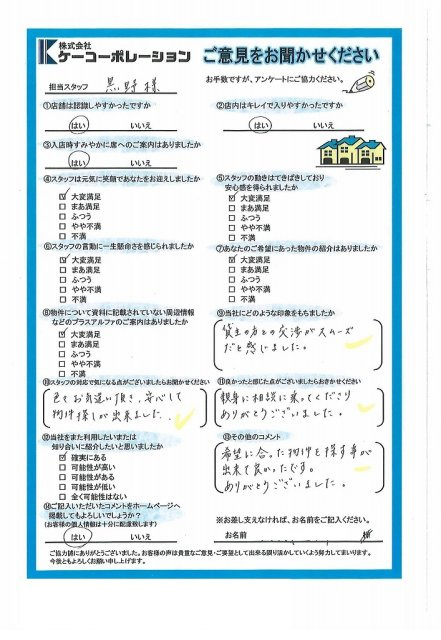 株式会社
ケーコーポレーション
ご意見をお聞かせください
担当スタッフ 黒野様
お手数ですが、アンケートにご協力ください。
①店舗は認識しやすかったですか
はい いいえ
②店内はキレイで入りやすかったですか
はい いいえ
③入店時すみやかに席へのご案内はありましたか
はい いいえ
④スタッフは元気に笑顔であなたをお迎えしましたか
☑ 大変満足
□ まあ満足
□ ふつう
□ やや不満
□ 不満
⑤スタッフの動きはてきぱきしており
安心感を得られましたか
☑ 大変満足
□ まあ満足
□ ふつう
□ やや不満
□ 不満
⑥スタッフの言動に一生懸命さを感じられましたか
☑ 大変満足
□ まあ満足
□ ふつう
□ やや不満
□ 不満
⑦あなたのご希望にあった物件の紹介はありましたか
☑ 大変満足
□ まあ満足
□ ふつう
□ やや不満
□ 不満
⑧物件について資料に記載されていない周辺情報
などのプラスアルファのご案内はありましたか
☑ 大変満足
□ まあ満足
□ ふつう
□ やや不満
□ 不満
⑨当社にどのような印象をもちましたか
貸主の方との交渉がスムーズ
だと感じました。
⑩スタッフの対応で気になる点がございましたらお聞かせください
色々お気遣い頂き、安心して
物件探しが出来ました。
⑪良かったと感じた点がございましたらおきかせください
親身に相談に乗ってくださり
ありがとうございました。
⑫当社をまた利用したいまたは
知り合いに紹介したいと思いましたか
☑ 確実にある
□ 可能性が高い
□ 可能性がある
□ 可能性が低い
□ 全く可能性はない
⑬その他のコメント
希望に合った物件を探す事が
出来て良かったです。
ありがとうございました。
⑭ご記入いただいたコメントをホームページへ
掲載してもよろしいでしょうか?
(お客様の個人情報は十分に配慮致します)
はい いいえ
※お差し支えなければ、お名前をご記入ください。
お名前 様
ご協力誠にありがとうございました。お客様の声は貴重なご意見・ご要望として出来る限り活かしていくよう努力してまいります。
今後ともよろしくお願い申し上げます。